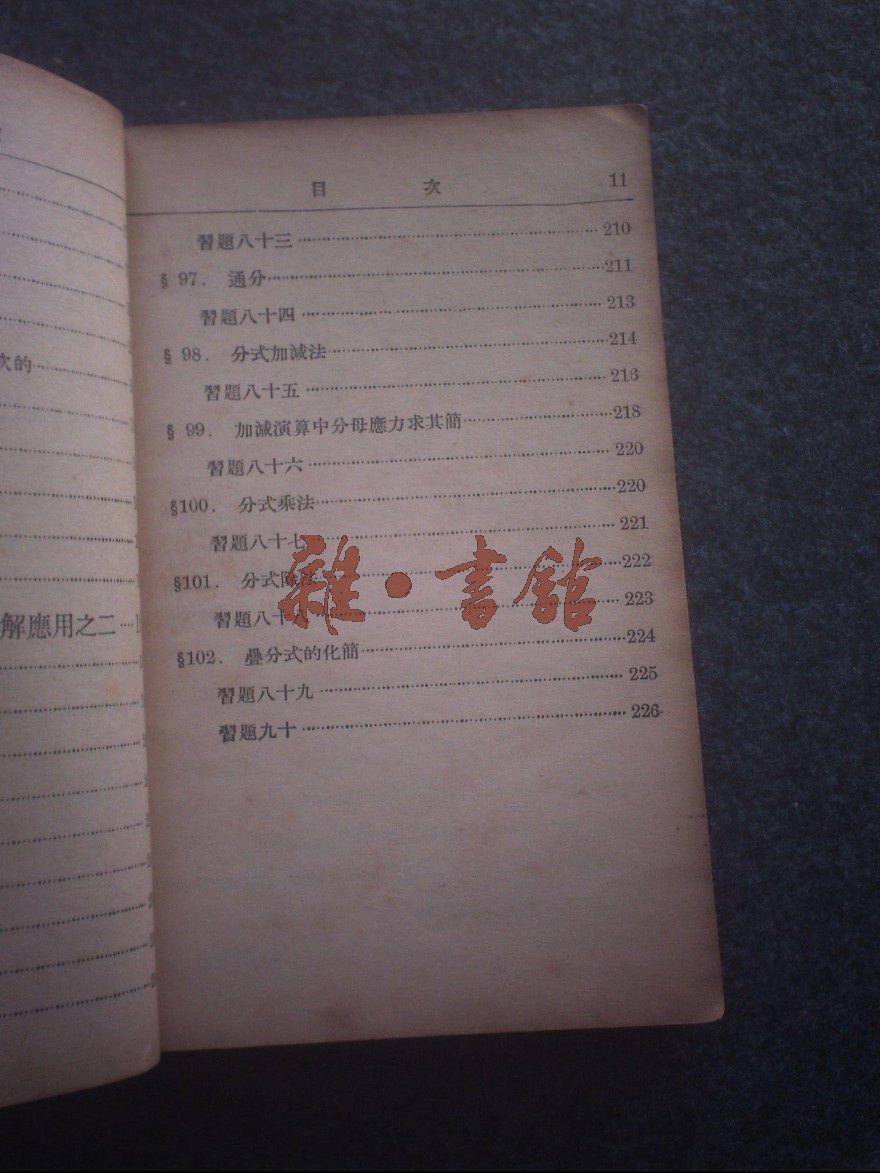 次的
解應用之二
目 次 11
習題八十三 210
§ 97. 通分 211
習題八十四 213
§ 98. 分式加減法 214
習題八十五 216
§ 99. 加減演算中分母應力求其簡 218
習題八十六 220
§100. 分式乘法 220
習題八十七 221
§101. 分式除法 222
習題八十八 223
§102. 疊分式的化簡 224
習題八十九 225
習題九十 226
雜·書館